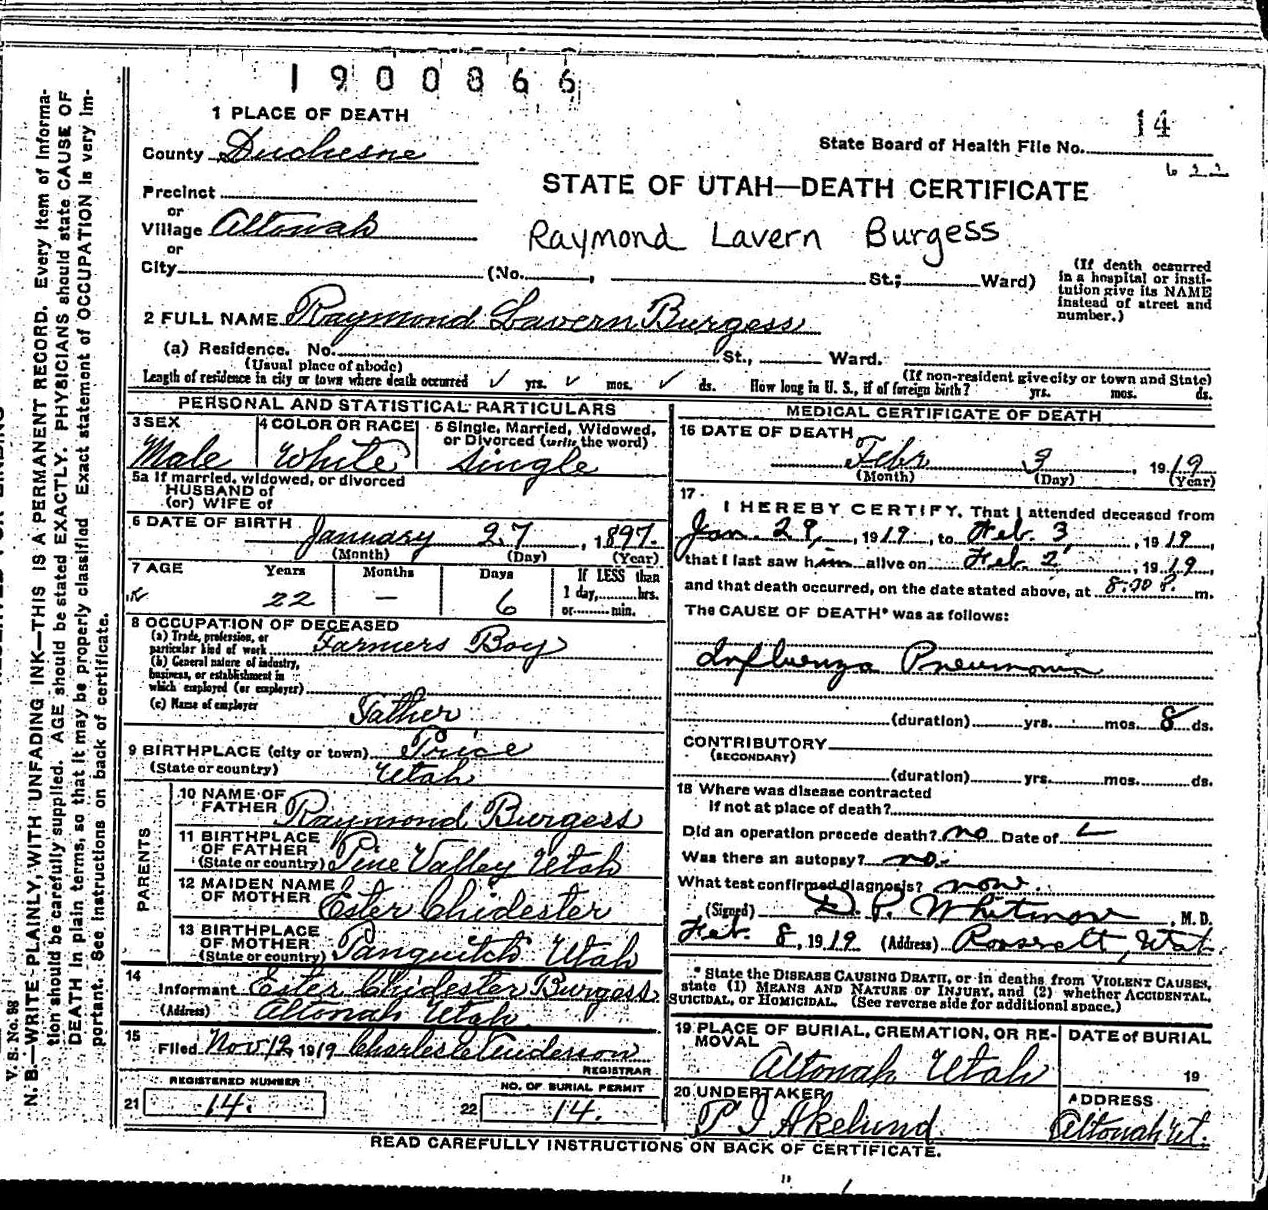 1900866
1 PLACE OF DEATH
14
County Duchesne
State Board of Health File No.
622
Precinct
STATE OF UTAH—DEATH CERTIFICATE
or
Village Altonah
Raymond Lavern Burgess
or
City (No. , St.; Ward)
(If death occurred in a hospital or institution give its NAME instead of street and number.)
2 FULL NAME Raymond Lavern Burgess
(a) Residence. No. St., Ward.
(Usual place of abode) (If non-resident give city or town and State)
Length of residence in city or town where death occurred ✓ yrs. ✓ mos. ✓ ds. How long in U. S., if of foreign birth? yrs. mos. ds.
PERSONAL AND STATISTICAL PARTICULARS
3 SEX
Male
4 COLOR OR RACE
White
5 Single, Married, Widowed, or Divorced (write the word)
Single
5a If married, widowed, or divorced
HUSBAND of
(or) WIFE of
6 DATE OF BIRTH January 27, 1897.
(Month) (Day) (Year)
7 AGE Years Months Days If LESS than
1 day, hrs.
22 — 6 or min.
8 OCCUPATION OF DECEASED
(a) Trade, profession, or
particular kind of work Farmers Boy
(b) General nature of industry,
business, or establishment in
which employed (or employer)
(c) Name of employer Father
9 BIRTHPLACE (city or town) Price
(State or country) Utah
PARENTS
10 NAME OF
FATHER Raymond Burgess
11 BIRTHPLACE
OF FATHER
(State or country) Pine Valley Utah
12 MAIDEN NAME
OF MOTHER Ester Chidester
13 BIRTHPLACE
OF MOTHER
(State or country) Panguitch Utah
14
Informant Ester Chidester Burgess
(Address) Altonah Utah.
15
Filed Nov 12, 1919 Charles E Anderson
REGISTRAR
REGISTERED NUMBER NO. OF BURIAL PERMIT
21 14. 22 14.
MEDICAL CERTIFICATE OF DEATH
16 DATE OF DEATH
Febr 3, 1919
(Month) (Day) (Year)
17
I HEREBY CERTIFY, That I attended deceased from
Jan. 29, 1919, to Feb. 3, 1919,
that I last saw him alive on Feb. 2, 1919,
and that death occurred, on the date stated above, at 8:00 P. m.
The CAUSE OF DEATH* was as follows:
Influenza Pneumonia
(duration) yrs. mos. 8 ds.
CONTRIBUTORY
(SECONDARY)
(duration) yrs. mos. ds.
18 Where was disease contracted
if not at place of death?
Did an operation precede death? no Date of
Was there an autopsy? no.
What test confirmed diagnosis? none.
(Signed) D. P. Whitmore, M.D.
Feb. 8, 1919 (Address) Roosevelt, Utah.
*State the DISEASE CAUSING DEATH, or in deaths from VIOLENT CAUSES,
state (1) MEANS AND NATURE OF INJURY, and (2) whether ACCIDENTAL,
SUICIDAL, or HOMICIDAL. (See reverse side for additional space.)
19 PLACE OF BURIAL, CREMATION, OR RE-
MOVAL
Altonah Utah
DATE of BURIAL
19
20 UNDERTAKER
P I Akelund.
ADDRESS
Altonah Ut.
READ CAREFULLY INSTRUCTIONS ON BACK OF CERTIFICATE.
V. S. No. 98
N. B.—WRITE PLAINLY, WITH UNFADING INK—THIS IS A PERMANENT RECORD. Every item of Informa-
tion should be carefully supplied. AGE should be stated EXACTLY. PHYSICIANS should state CAUSE OF
DEATH in plain terms, so that it may be properly classified. Exact statement of OCCUPATION is very im-
portant. See instructions on back of certificate.